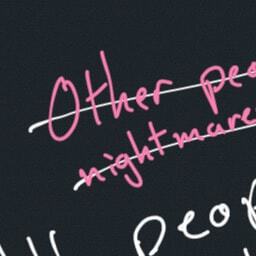 Other peo
nightmare
ll peop